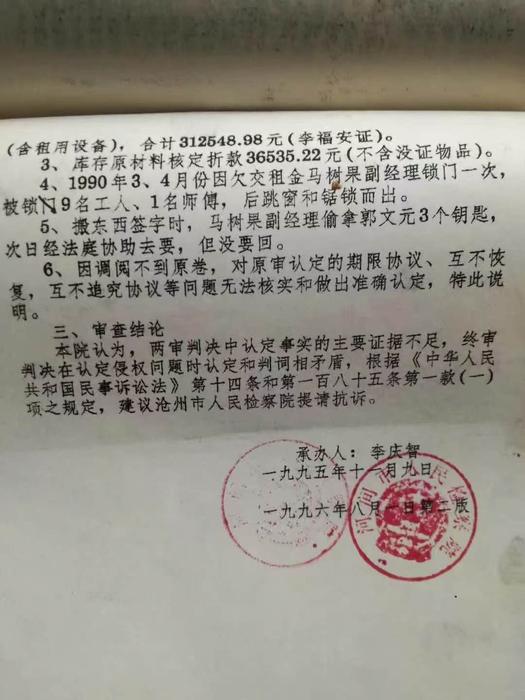 (含租用设备)，合计312548.98元(李福安证)。
3、库存原材料核定折款36535.22元(不含没证物品)。
4、1990年3、4月份因欠交租金马树果副经理锁门一次，
被锁9名工人、1名师傅，后跳窗和锯锁而出。
5、搬东西签字时，马树果副经理偷拿郭文元3个钥匙，
次日经法庭协助去要，但没要回。
6、因调阅不到原卷，对原审认定的期限协议、互不恢
复，互不追究协议等问题无法核实和做出准确认定，特此说
明。
三、审查结论
本院认为，两审判决中认定事实的主要证据不足，终审
判决在认定侵权问题时认定和判词相矛盾，根据《中华人民
共和国民事诉讼法》第十四条和第一百八十五条第一款(一)
项之规定，建议沧州市人民检察院提请抗诉。
承办人：李庆智
一九九五年十一月九日
一九九六年八月一日第二版
河间市人民检察院